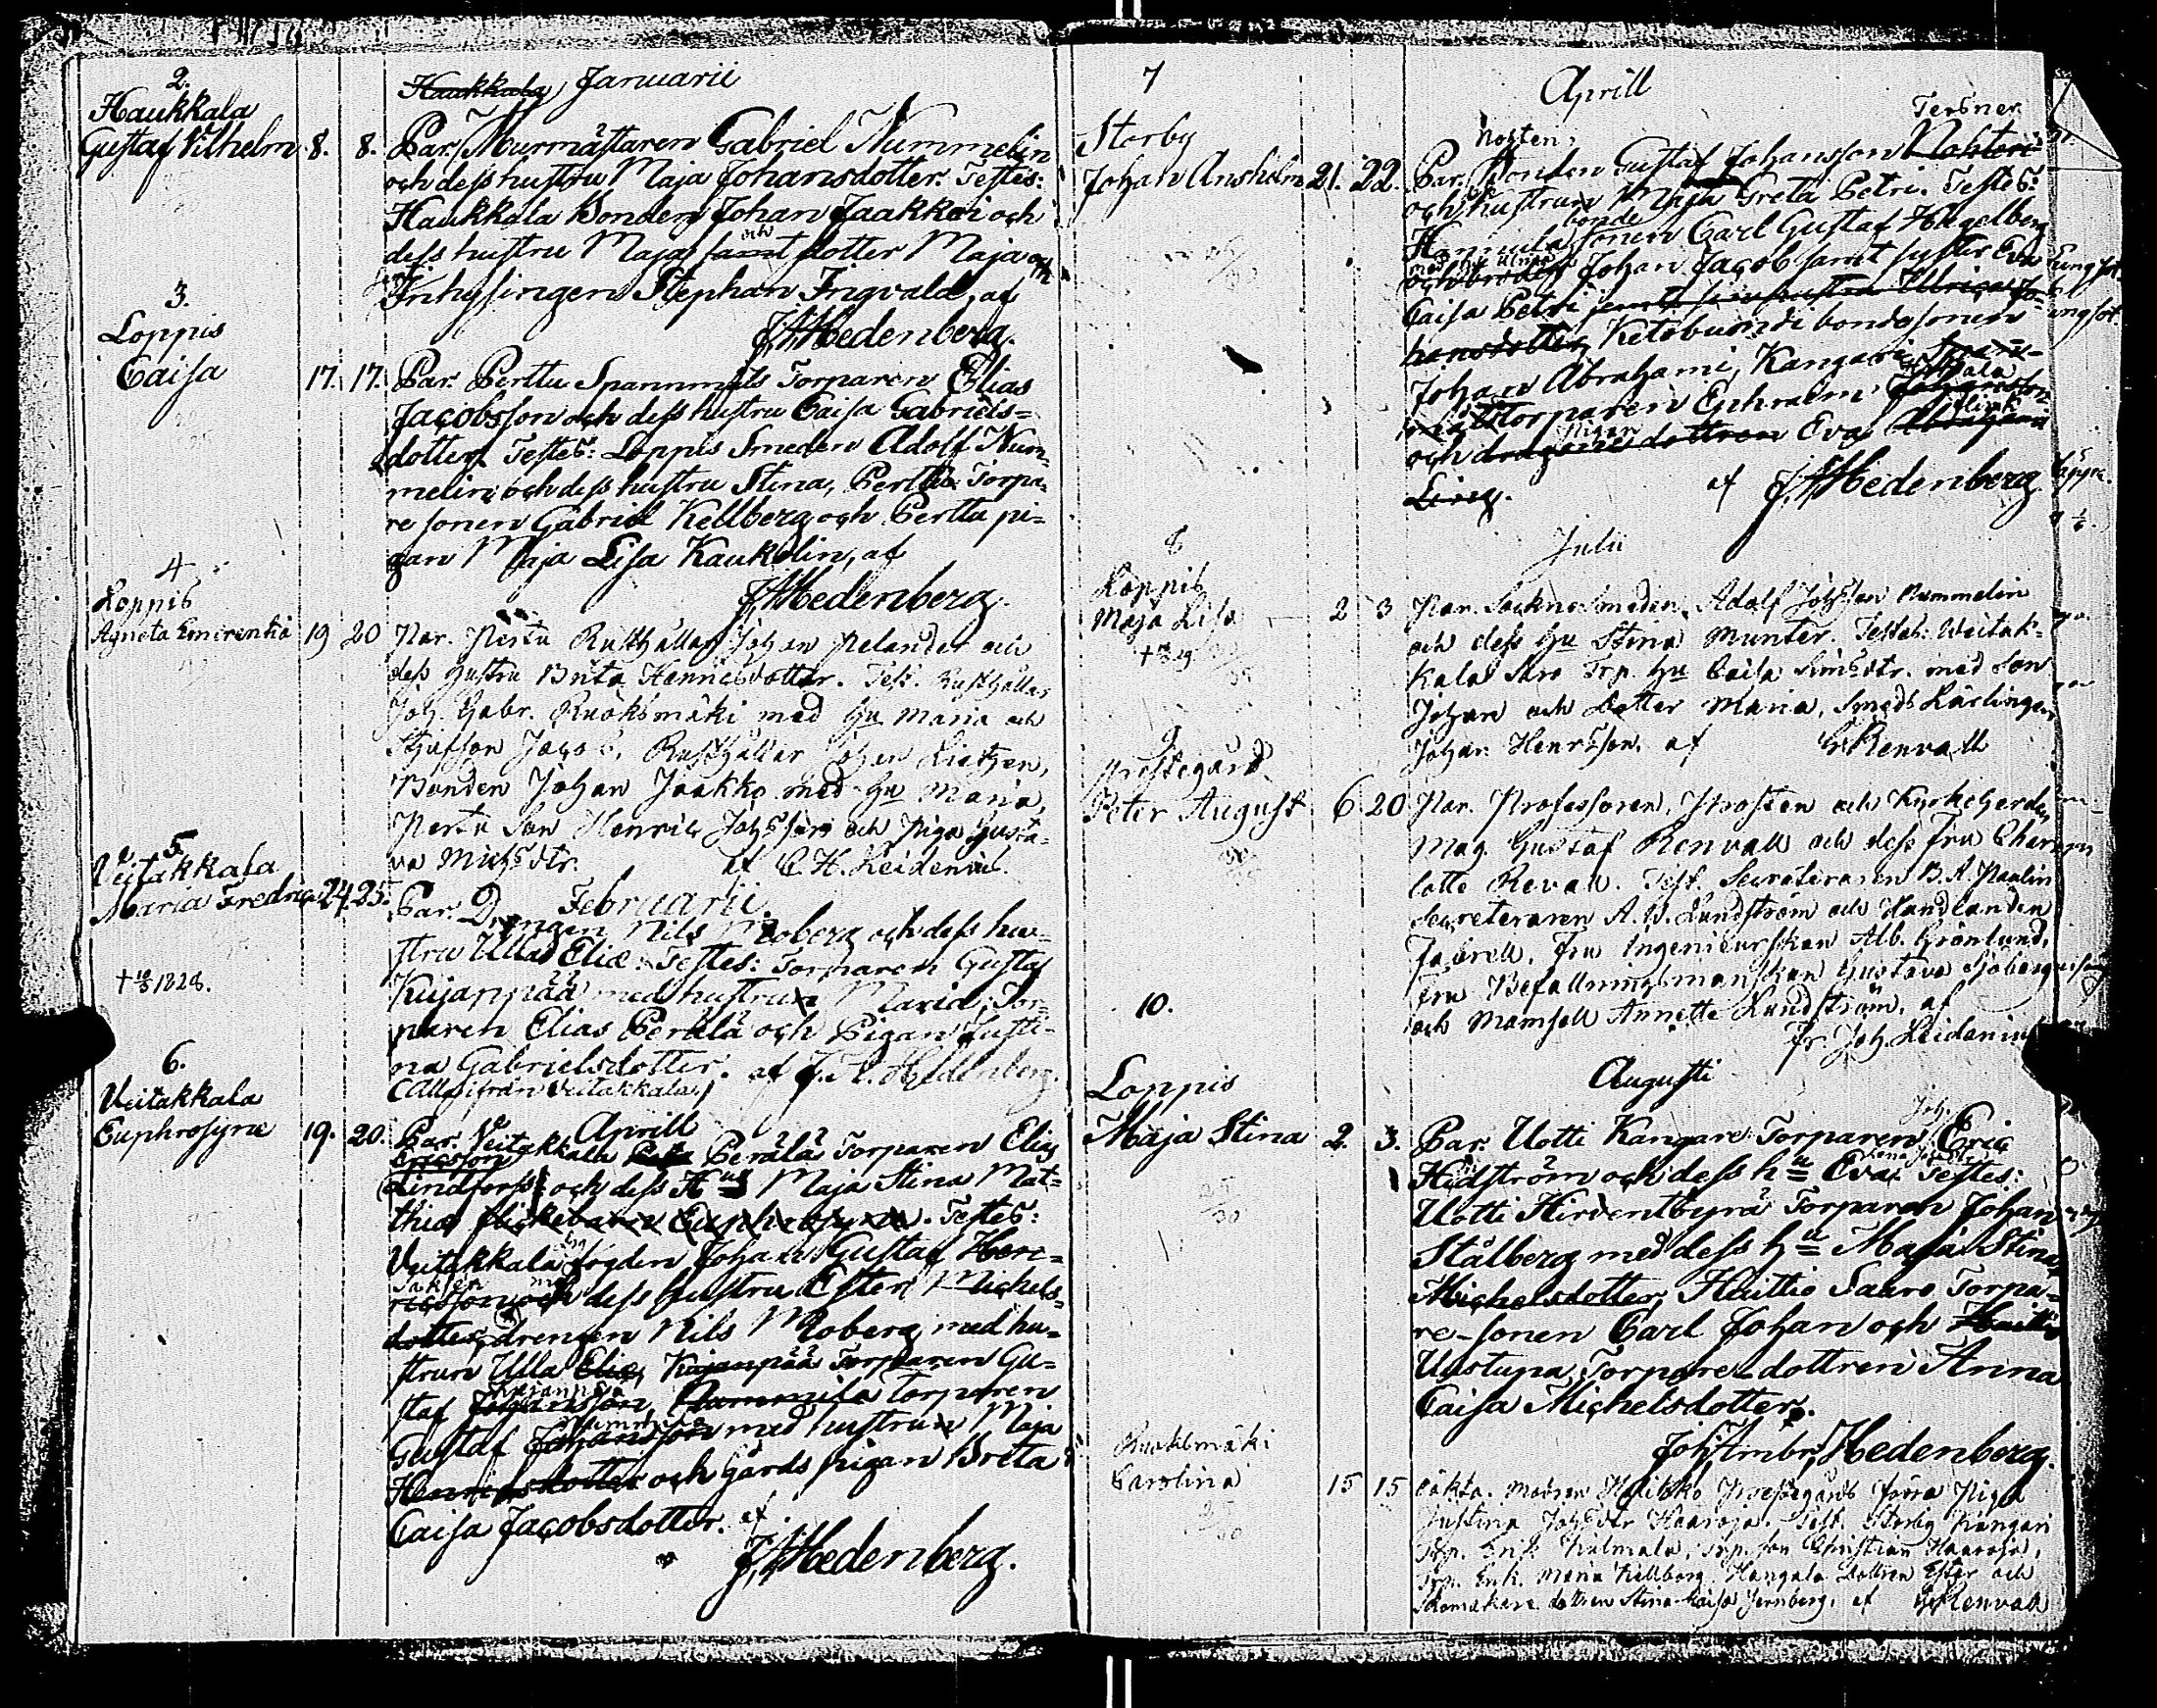 2.
Haukkala
Gustaf Vilhelm 8. 8.
Haukkala Januarii
Par. Murmästaren Gabriel Nummelin
och dess hustru Maja Johansdotter. Testes:
Haukkala Bonden Johan Jaakkoi och
dess hustru Maja samt och dotter Maja och
Inhysingen Stephan Ingvald, af
J.A.Hedenberg.
3.
Loppis
Caisa 17. 17.
Par. Perttu Spannmåls Torparen Elias
Jacobsson och dess hustru Caisa Gabriels=
dotter. Testes: Loppis Smeden Adolf Num=
melin och dess hustru Stina, Perttu Torpa=
re sonen Gabriel Kellberg och Perttu pi=
gan Maja Lisa Kaukelin, af
J.A.Hedenberg.
4
Loppis
Agneta Emerentia 19 20
Par. Pertu Rusthållar Johan Pelander och
dess hustru Brita Henricsdotter. Test. Rusthållar
Joh. Gabr. Ruoksmäki med hu Maria och
Stjufson Jacob, Rusthållar Johan
Bonden Johan Jaakko med hu Maria,
Pertu Son Henric Johsson och Piga Gusta-
va Michsdtr. af C.H. Leidenius.
5.
Veitakkala
Maria Fredrica 24. 25.
Februarii
Par. Drengen Nils Moberg och dess hu=
stru Ulla Eliæ. Testes: Torparen Gustaf
Kujanpää med hustrun Maria, Tor=
paren Elias Perälä och Pigan Justi=
na Gabrielsdotter. af J.A. Hedenberg.
(Alla ifrån Veitakkala.)
† 1828.
6.
Veitakkala
Euphrosyne 19. 20.
Aprill
Par. Veitakkala Perälä Torparen Elias
Ericsson
(Lindforss) och dess Hus Maja Stina Mat=
thiæ flickebarn Euphrosyne. Testes:
Veitakkala fogden Johan Gustaf Hen=
Saksen med
ricsson och dess hustru Ester Michels=
dotter, drengen Nils Moberg med hu=
strun Ulla Eliæ, Kujanpää Torparen Gu=
Kujanpää
staf Johansson, Nummila Torparen
Nummila
Gustaf Johansson med hustrun Maja
Henricsdotter och Gårds pigan Breta
Caisa Jacobsdotter. af
J.A.Hedenberg.
7
Storby
Johan Anshelm 21. 22.
Aprill
Tersner
Nohteri
Par. Bonden Gustaf Johansson Nohteri
och hustrun Maja Greta Petri. Testes:
bonde
Hannula sonen Carl Gustaf Hagelberg
och Johan Jacob samt syster Eva
Caisa Petri jemte hustru Ulrica Jo=
hansdotter, Ketobuondi bondesonen
Johan Abrahami, Kangari Spann=
måls torparen Ephraim Johansson
Pigan Flink
och dragone dottren Eva Abrahami
Ling. af J.A.Hedenberg
8
Loppis
Maja Lisa 2 3
Julii
Par. Sockne Smeden Adolf Johsson Nummelin
och dess hu Stina Munter. Testes: Weitak-
kala Saro Trp. hu Caisa Simsdtr. med Son
Johan och Dotter Maria, Smeds Lärlingen
Johan Henrsson, af G.Renvall
9.
Prestegård
Peter August 6 20
Par. Professoren, Prosten och Kyrkoherden
Mag. Gustaf Renvall och dess Fru Char-
lotte Renvall. Test. Secreteraren B.A. Paulin
Secreteraren A.W. Lundström och Handlanden
Fru Ingenieurskan Alb. Grönlund,
Fru Befallningsmanskan Gustava Sjöberg
och Mamsell Annette Lundström, af
Fr. Joh. Leidenius
10.
Loppis
Maja Stina 2. 3.
Augusti
Joh.
Par. Uotti Kangare Torparen Eric
Hidström och dess hu Eva. Testes:
Uotti Hirventbyrå Torparen Johan
Stålberg med dess hu Maja Stina
Michelsdotter, Haittio Saaro Torpa=
re-sonen Carl Johan och
Uustupa Torpare-dottren Anna
Caisa Michelsdotter.
Joh. Ambr. Hedenberg.
Ruoksmäki
Carolina 15 15
Oäkta. Modren Halikko Prestegårds förra Piga
Justina Johsdtr Haaroja. Test. Storby Kangari
Trp. Erik Kulmala, Trp. son Christian Haaroja,
Trp. Enk. Maria Kellberg, Hangala dottren Ester och
Skomakare dottren Stina Caisa Jernberg, af G.Renvall